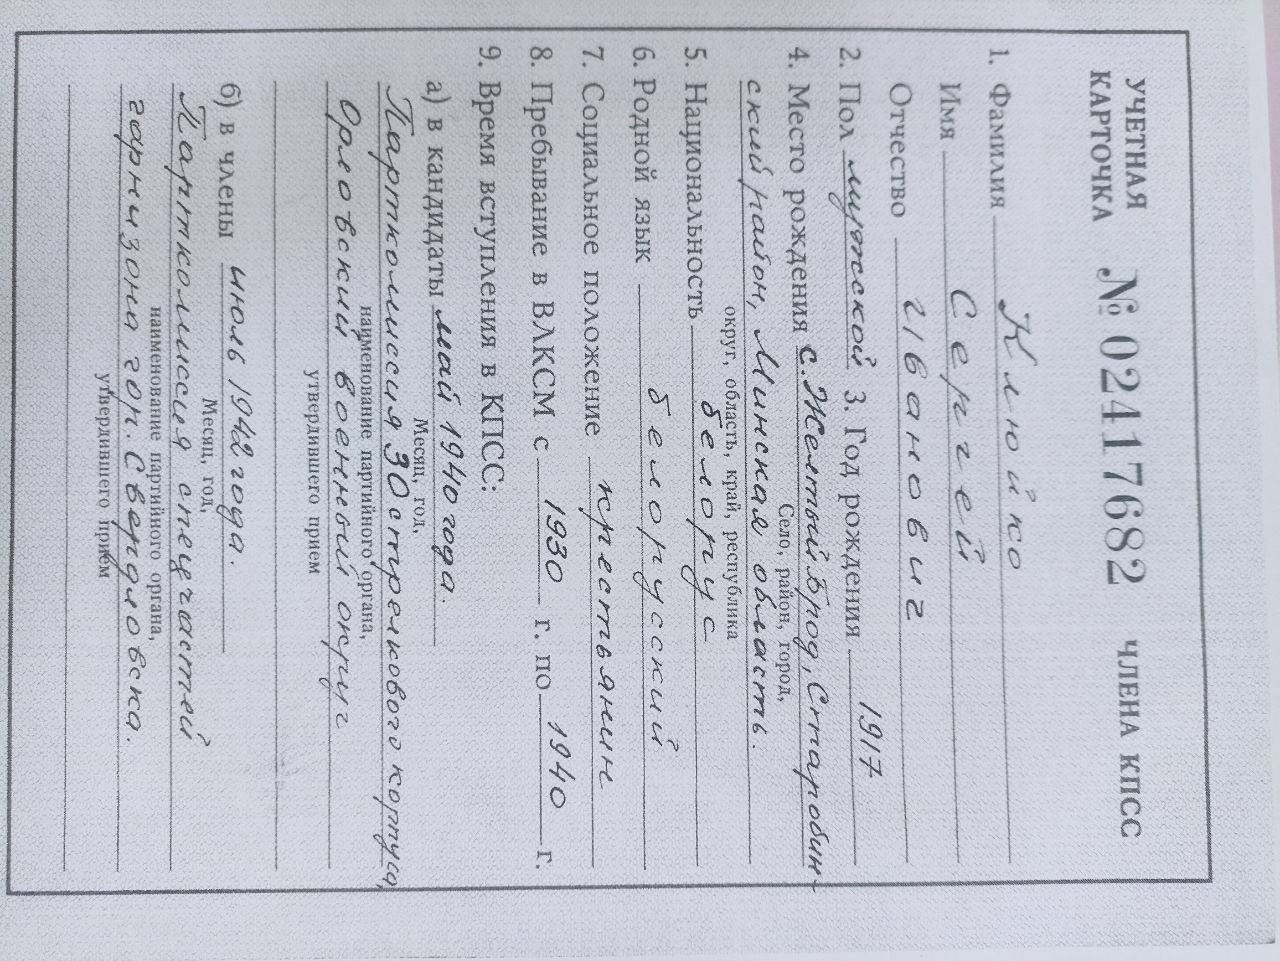 УЧЕТНАЯ КАРТОЧКА № 02417682 ЧЛЕНА КПСС
1. Фамилия Клюйко
Имя Сергей
Отчество Иванович
2. Пол мужской 3. Год рождения 1917
4. Место рождения с. Желтый Брод, Старобин-
Село, район, город,
ский район, Минская область.
округ, область, край, республика
5. Национальность белорус
6. Родной язык белорусский
7. Социальное положение крестьянин
8. Пребывание в ВЛКСМ с 1930 г. по 1940 г.
9. Время вступления в КПСС:
а) в кандидаты май 1940 года.
Месяц, год,
Парткомиссия 30 стрелкового корпуса,
наименование партийного органа,
Орловский военный округ
утвердившего прием
б) в члены июль 1942 года.
Месяц, год,
Парткомиссия спецчастей
наименование партийного органа,
гарнизона гор. Свердловска.
утвердившего прием